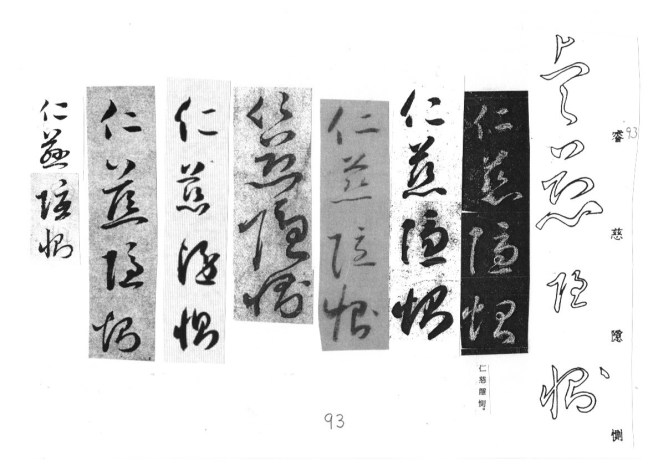 93
慈隱惻
慈隱惻
仁慈隱惻
仁慈隱惻。
仁慈隱惻
仁慈隱惻
仁慈隱惻
仁慈隱惻
仁慈隱惻
仁慈隱惻
93